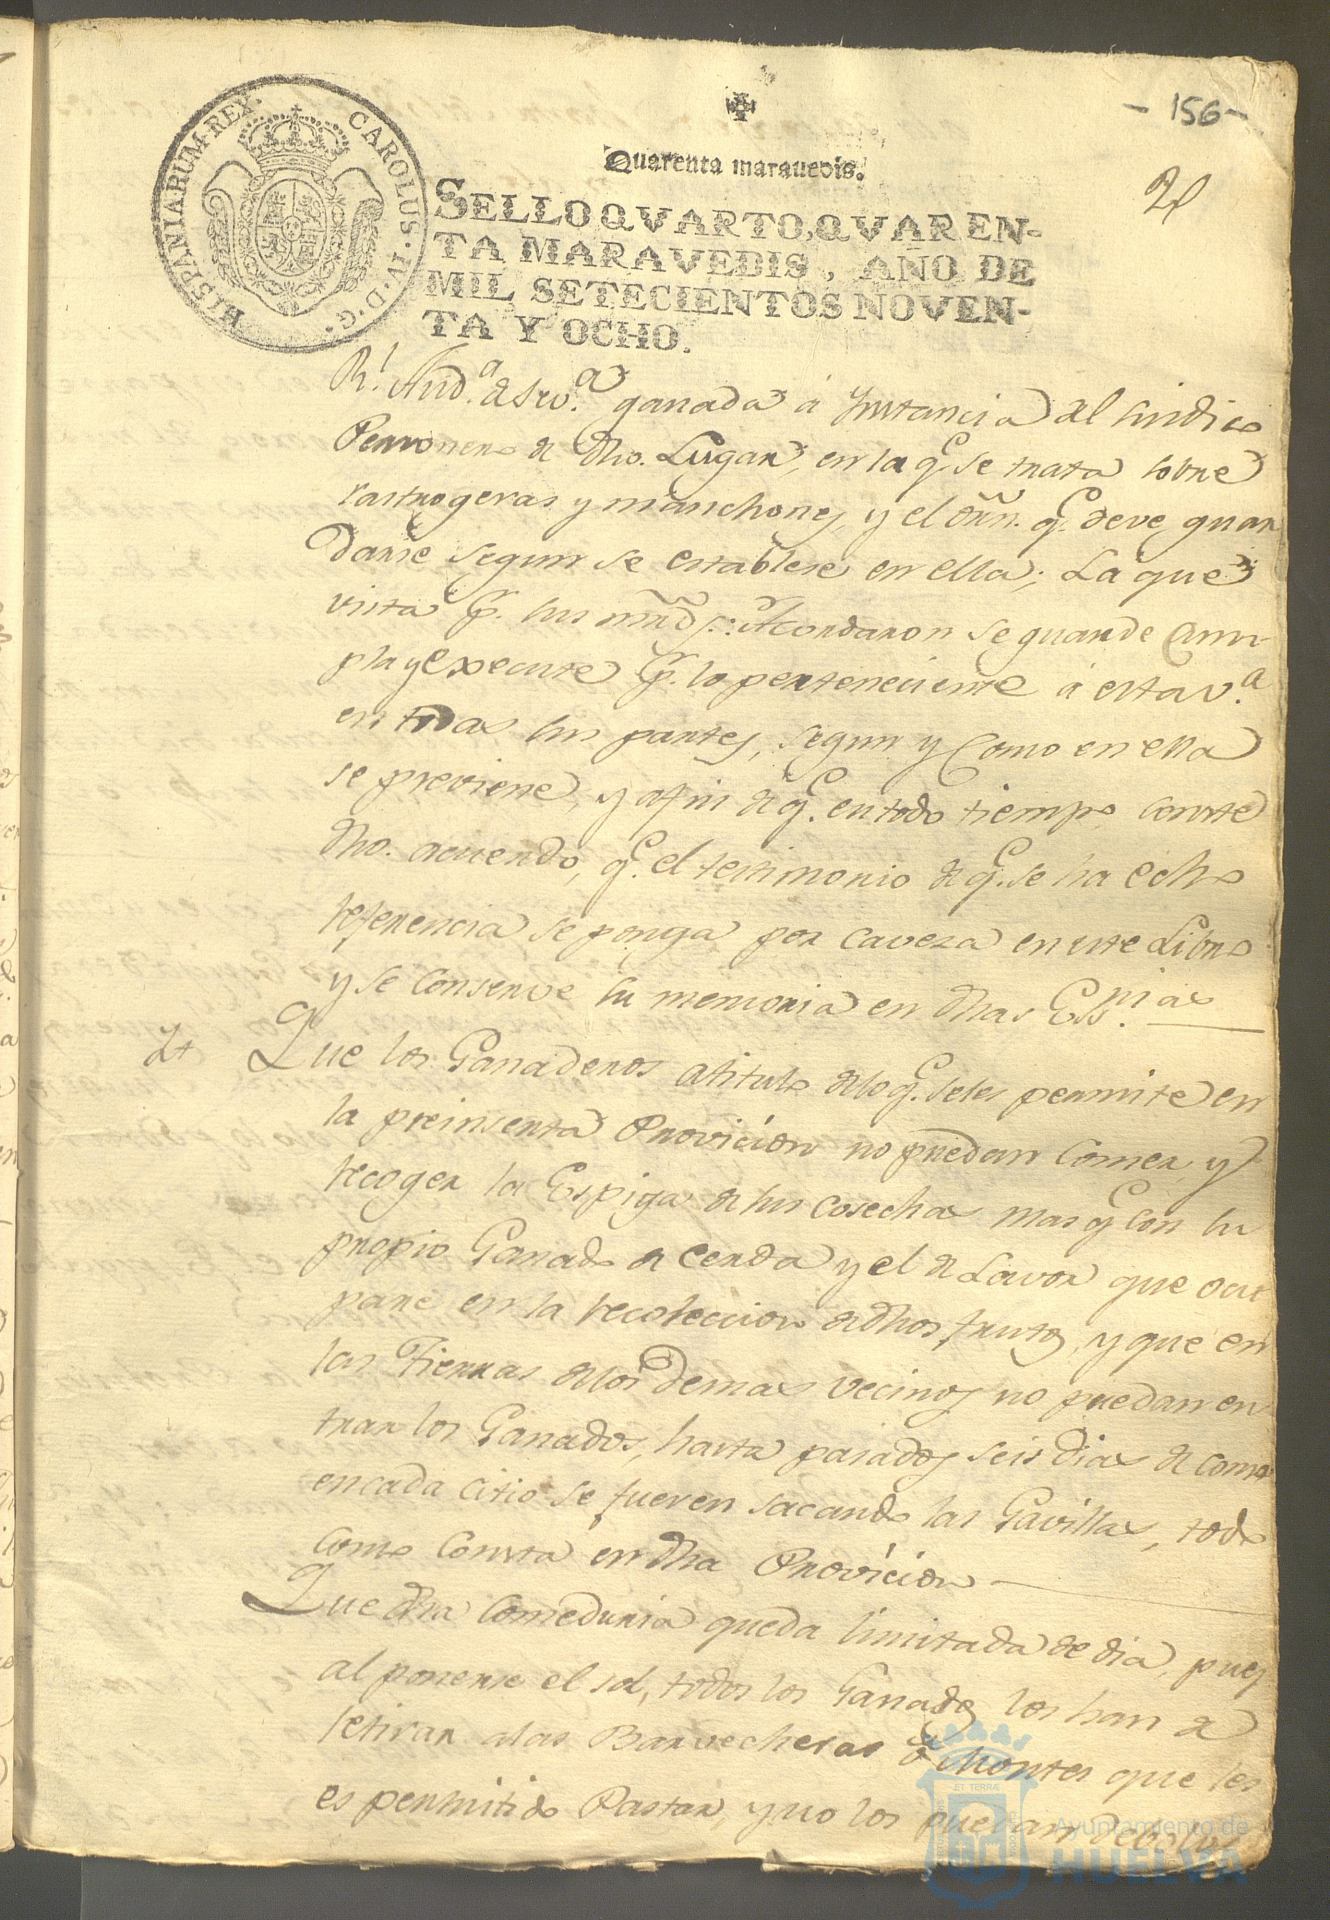 - 156 -
Quarenta maravedis.
SELLO QVARTO, QVAREN-
TA MARAVEDIS, AÑO DE
MIL SETECIENTOS NOVEN-
TA Y OCHO.
HISPANIARUM · REX · CAROLUS · IV · D · G ·
Rl. Audª. de Sevª. ganada á Ynstancia del sindico
Personero de dho. Lugar, en la q. se trata sobre
rastrogeras y manchones, y el orñ. q. deve guar
darse segun se establese en ella; La que
vista p. sus mrds: Acordaron se guarde Cum
pla y execute p. lo perteneciente á esta vª.
en todas sus partes, segun y Como en ella
se previene, y afin de q. en todo tiempo conste
dho. acuerdo, q. el testimonio de q. se ha echo
referencia se ponga por caveza en este Libro
y se conserve su memoria en dhas Essnias
Que los Ganaderos atitulo delo q. seles permite en
la preinserta Provicion no puedan Comer, y
recoger la Espiga de sus cosechas mas q. con su
propio Ganado de cerda y el de Lavor que ocu
pare en la recoleccion de dhos frutos, y que en
las Tierras delos demas vecinos no puedan en
trar los Ganados, hasta pasados seis dias de como
en cada citio se fueren sacando las Gavillas, todo
como consta en dha Provicion
Que dha comeduria queda limitada de dia, pues
al ponerse el sol, todos los Ganados los han de
retirar alas Barvecheras ó Montes que les
es permitido Pastar, y no los puedan debolver
Ayuntamiento de
HUELVA